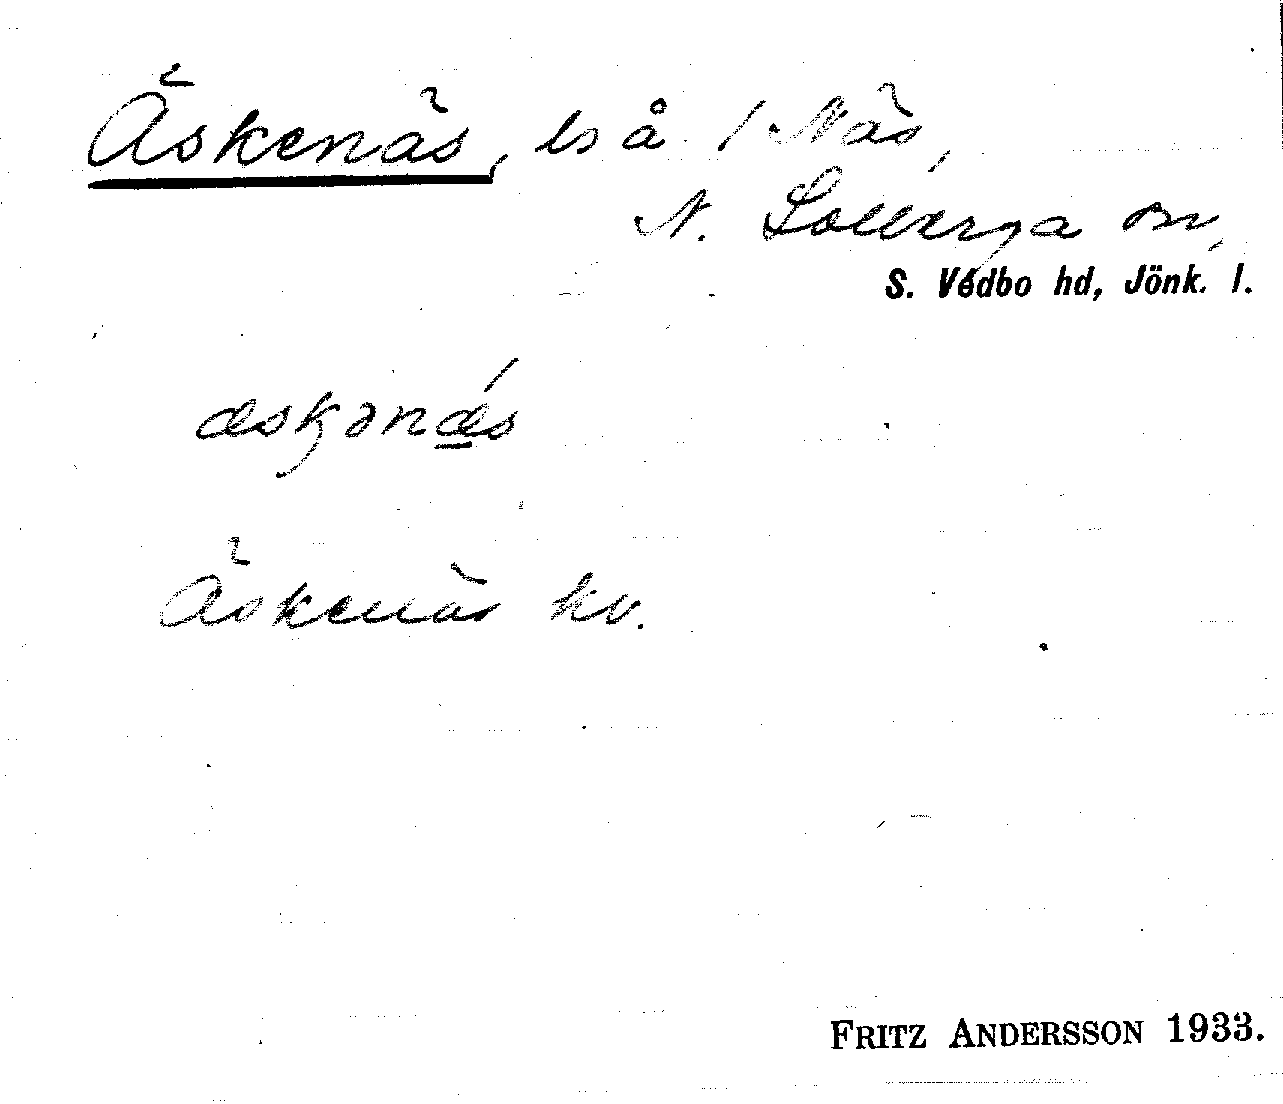 Äskenäs, ls å 1 Näs,
N. Solberga sn,
S. Vedbo hd, Jönk. l.
æskənǽ̲s
Äskenäs kv.
FRITZ ANDERSSON 1933.